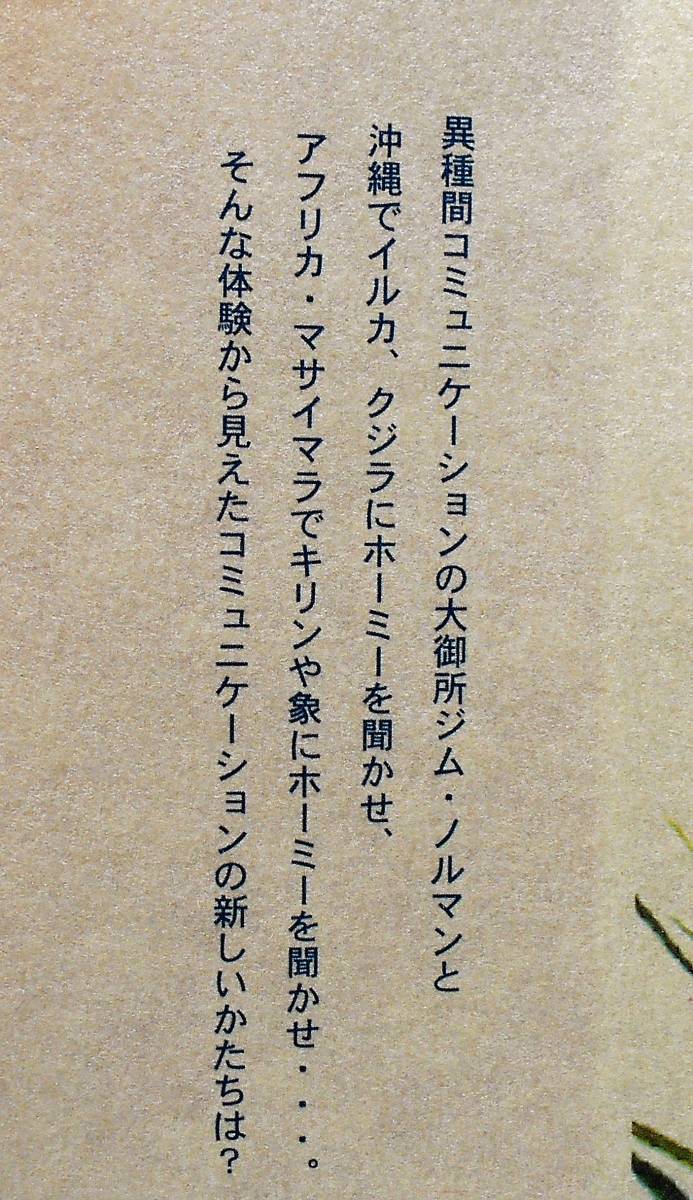 異種間コミュニケーションの大御所ジム・ノルマンと
沖縄でイルカ、クジラにホーミーを聞かせ、
アフリカ・マサイマラでキリンや象にホーミーを聞かせ・・・。
そんな体験から見えたコミュニケーションの新しいかたちは?